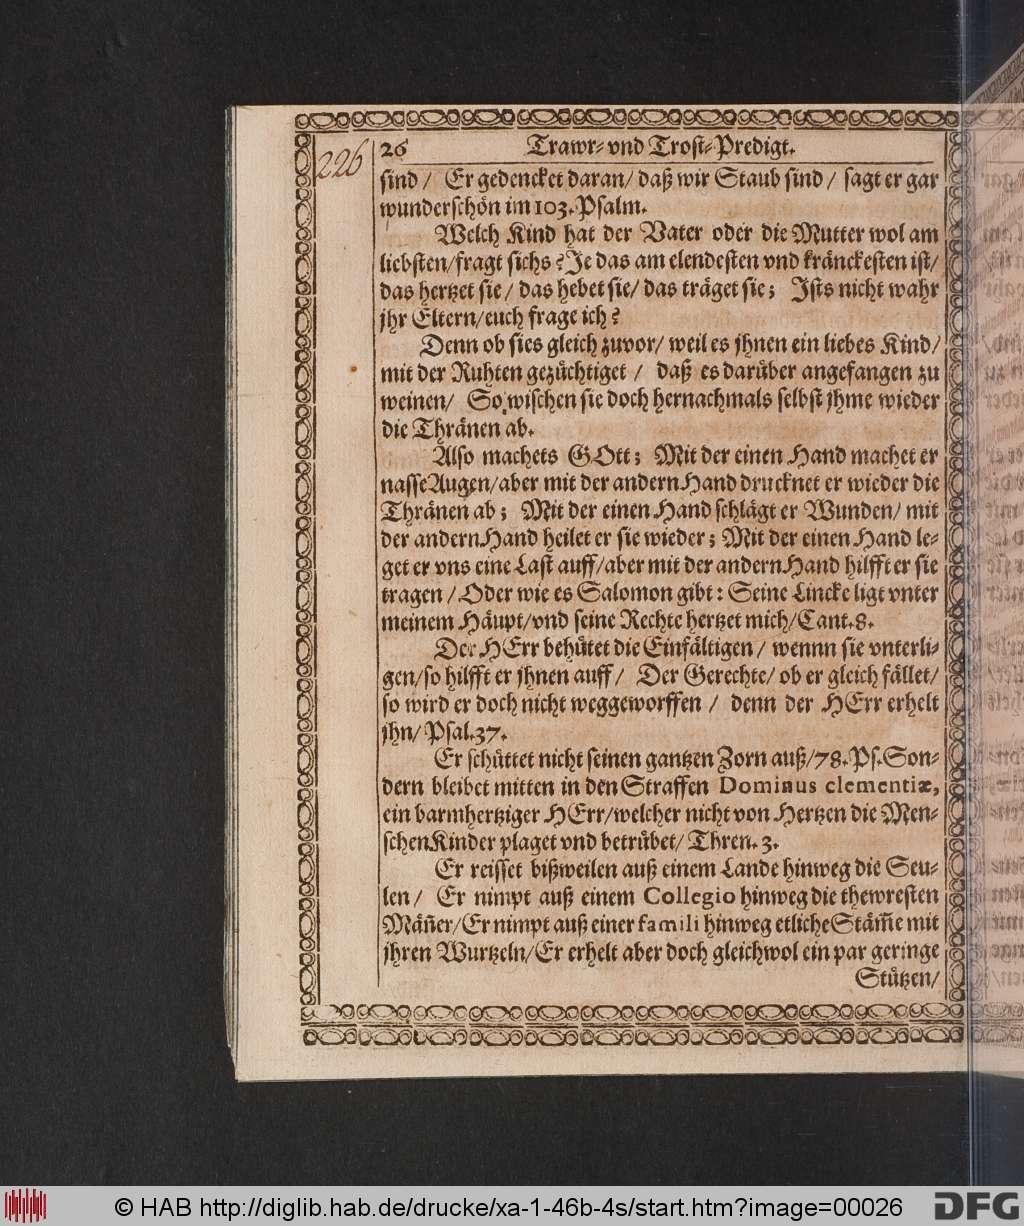 226
26 Trawr- vnd Trost-Predigt.
sind / Er gedencket daran/ daß wir Staub sind / sagt er gar
wunderschön im 103. Psalm.
Welch Kind hat der Vater oder die Mutter wol am
liebsten/fragt sichs? Je das am elendesten vnd kränckesten ist/
das hertzet sie / das hebet sie/ das träget sie; Ists nicht wahr
jhr Eltern/euch frage ich?
Denn ob sies gleich zuvor/ weil es jhnen ein liebes Kind/
mit der Ruhten gezüchtiget / daß es darüber angefangen zu
weinen/ So wischen sie doch hernachmals selbst jhme wieder
die Thränen ab.
Also machets GOtt; Mit der einen Hand machet er
nasse Augen/aber mit der andern Hand drucknet er wieder die
Thränen ab; Mit der einen Hand schlägt er Wunden/ mit
der andern Hand heilet er sie wieder; Mit der einen Hand le-
get er vns eine Last auff/aber mit der andern Hand hilfft er sie
tragen / Oder wie es Salomon gibt: Seine Lincke ligt vnter
meinem Häupt/vnd seine Rechte hertzet mich/Cant. 8.
Der HErr behütet die Einfältigen / wennn sie vnterli-
gen/so hilfft er jhnen auff / Der Gerechte/ ob er gleich fället/
so wird er doch nicht weggeworffen / denn der HErr erhelt
jhn/ Psal. 37.
Er schüttet nicht seinen gantzen Zorn auß/78. Ps. Son-
dern bleibet mitten in den Straffen Dominus clementiæ,
ein barmhertziger HErr/welcher nicht von Hertzen die Men-
schenKinder plaget vnd betrübet/ Thren. 3.
Er reisset bißweilen auß einem Lande hinweg die Seu-
len / Er nimpt auß einem Collegio hinweg die thewresten
Mäñer/Er nimpt auß einer famili hinweg etliche Stäm̃e mit
jhren Wurtzeln/Er erhelt aber doch gleichwol ein par geringe
Stützen/
© HAB http://diglib.hab.de/drucke/xa-1-46b-4s/start.htm?image=00026
DFG